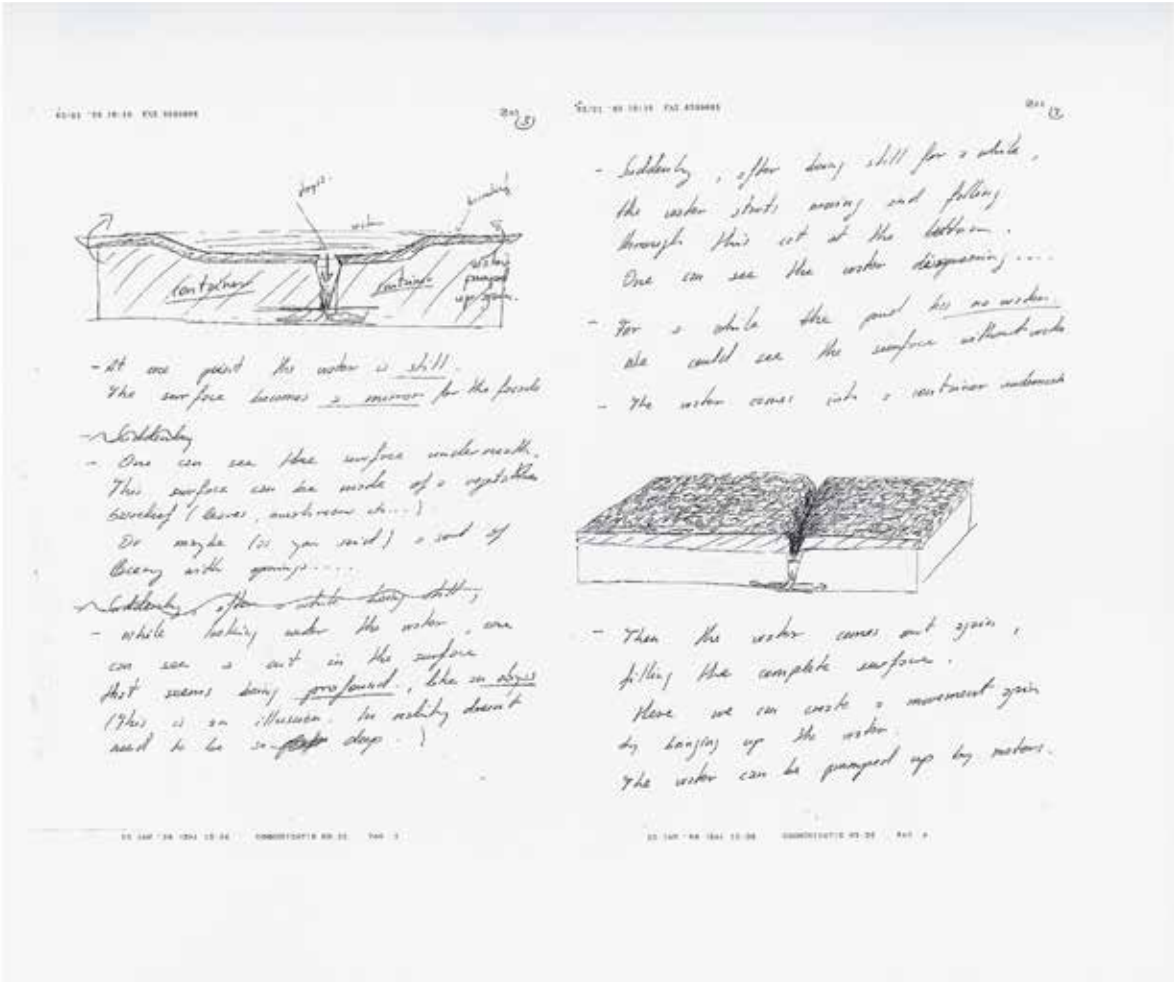 abyss.
water
container
container
water
pumped
up again.
- At one point the water is still.
The surface becomes a mirror for the facade
- Suddenly
- One can see the surface underneath.
This surface can be made of a vegetables
basrelief (leaves, mushroom etc...)
Or maybe (as you said) a sort of
with openings....
- Suddenly, after a while being still,
- While looking under the water, one
can see a cut in the surface
that seems being profound, like an abyss
(This is an illusion. In reality doesn't
need to be so deep.)
- Suddenly, after being still for a while,
the water starts moving and falling
through this cut at the bottom.
One can see the water disapearing....
- For a while the pond has no water.
We could see the surface without water
- The water comes into a container underneath
- Then the water comes out again,
filling the complete surface.
Here we can create a movement again
by bringing up the water.
The water can be pumped up by motors.